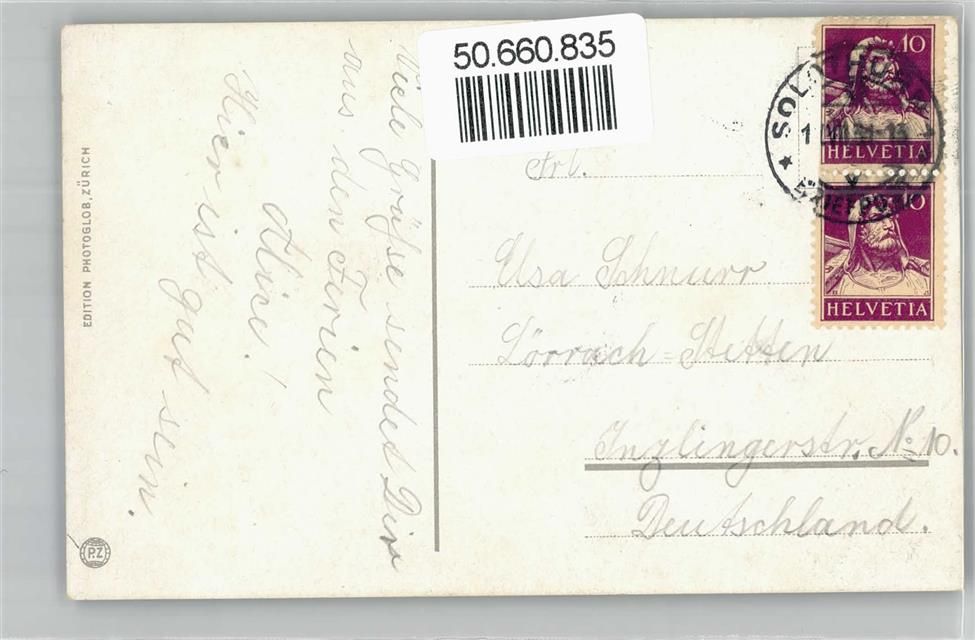 50.660.835
Viele Grüße sendet Dir
aus den Ferien
Alice!
Hier ist gut sein.
EDITION PHOTOGLOB, ZÜRICH
P.Z
10
HELVETIA
10
HELVETIA
SOLOTHURN
BRIEFPOST
Frl.
Elsa Schnurr
Lörrach-Stetten
Inzlingerstr. No 10.
Deutschland.